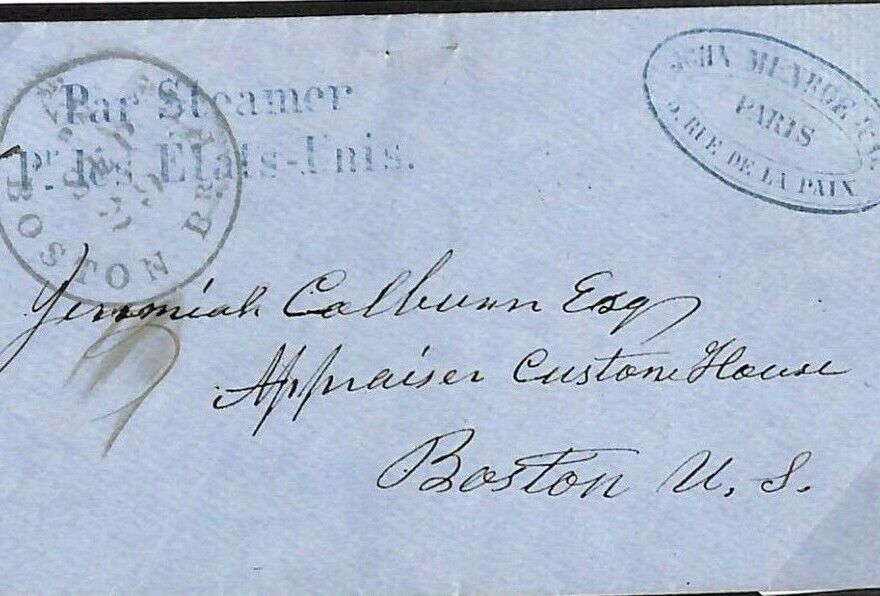 Par Steamer
pr. les Etats-Unis.
BOSTON Br
JOHN MUNROE & Co.
PARIS
5, RUE DE LA PAIX
Jeremiah Colburn Esq
Appraiser Custom House
Boston U. S.